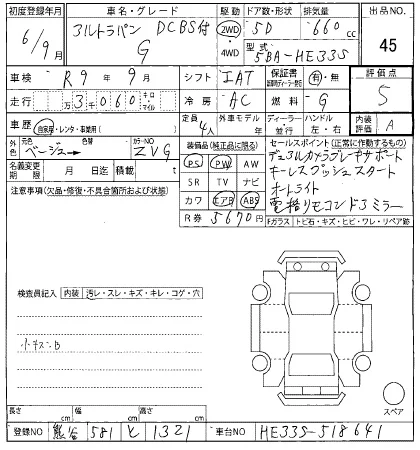 初度登録年月 車名・グレード 駆動 ドア数・形状 排気量 出品NO.
6/9月 アルトラパン DCBS付 G 2WD・4WD 5D 660cc 45
型式 5BA-HE33S
車検 R9年9月 シフト IAT 保証書 有・無 評価点 5
走行 万3千060 キロ・マイル 冷房 AC 燃料 G
車歴 自家用・レンタ・事業用( ) 定員 4人 外車モデル 年 ディーラー 並行 ハンドル 左・右 内装評価 A
外色 元色 ベージュ→ 色替 カラーNO ZVG
装備品(純正品に限る) セールスポイント(正常に作動するもの)
PS PW AW デュアルカメラブレーキサポート
名義変更期限 月 日迄 積載 t
SR TV ナビ キーレスプッシュスタート
注意事項(欠品・修復・不具合箇所および状態)
カワ エアB ABS オートライト
R券 5670円 電格リモコンドアミラー
Fガラス トビ石・キズ・ヒビ・ワレ・リペア跡
検査員記入 内装 汚レ・スレ・キズ・キレ・コゲ・穴
小キズB
スペア
長さ cm 幅 cm 高さ cm
登録NO 熊谷 581 と 1321 車台NO HE33S-518641